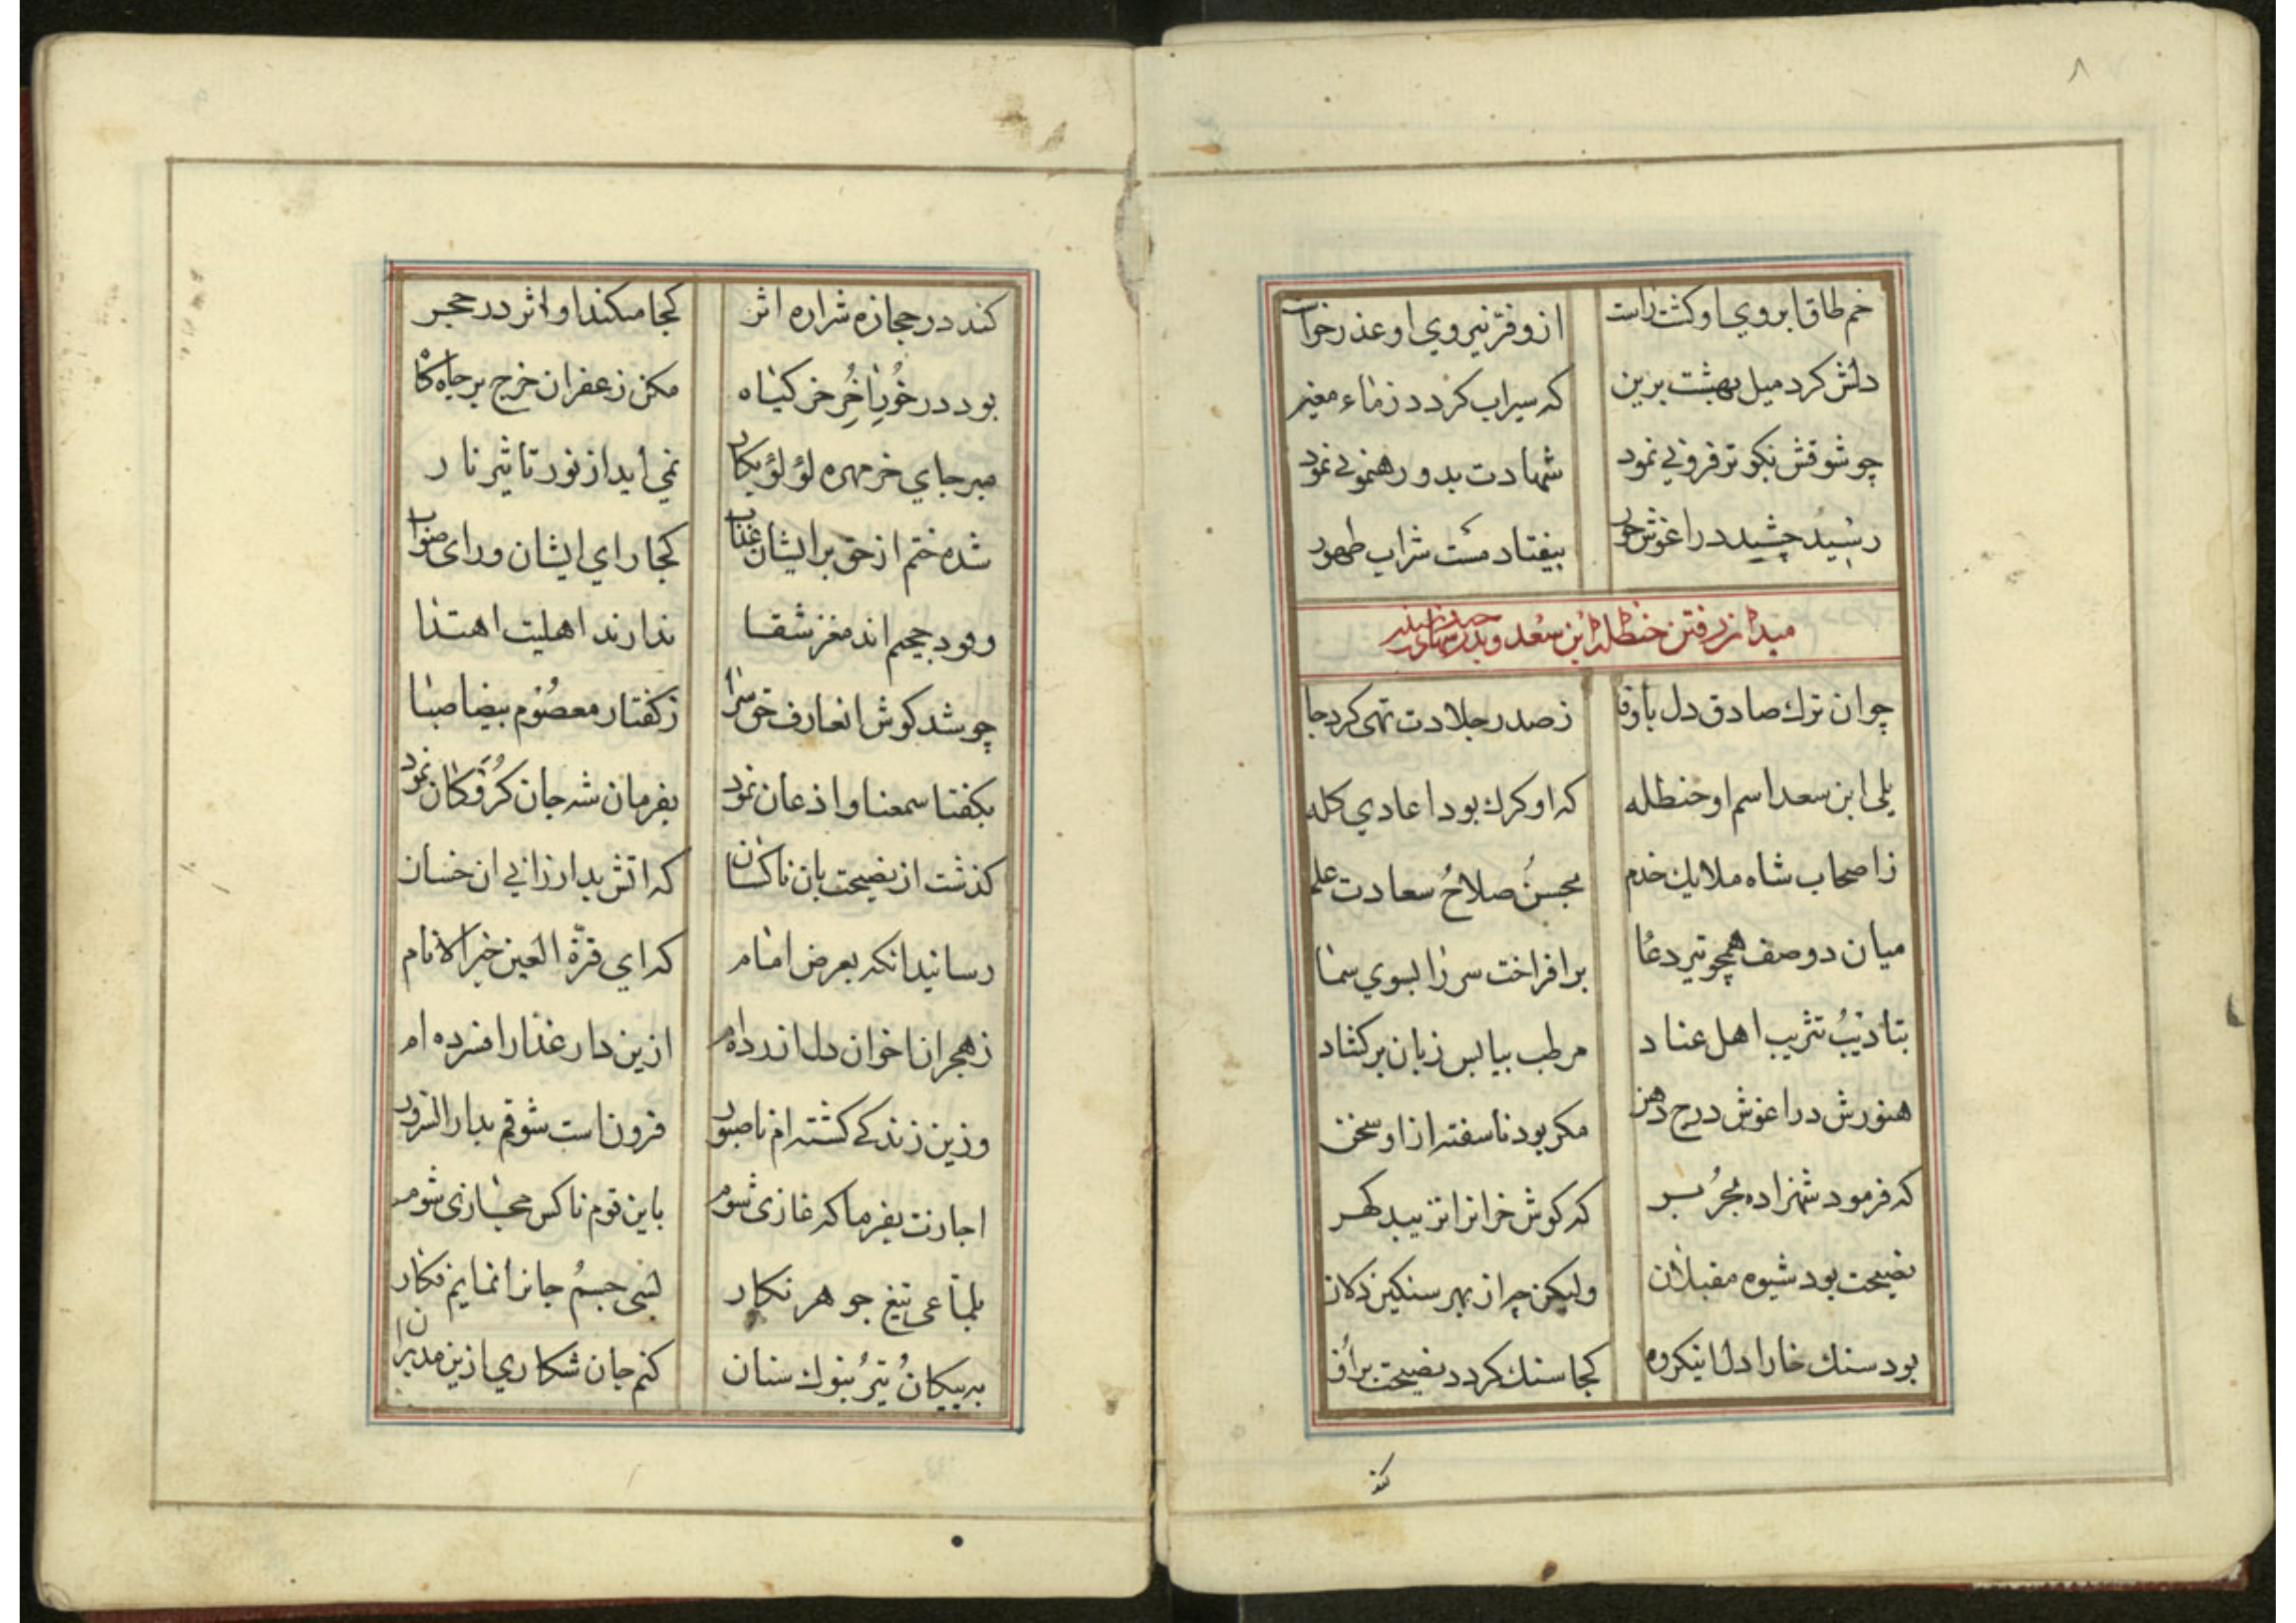 ۸
خم طاق ابروي او كشت راست از و فرّ نيروي او عذر خواست
دلش كرد ميل بهشت برين كه سيراب كردد ز ماء معين
چو شوقش نكوتر فزوني نمود شهادت بدو رهنموني نمود
رسيد چشيد در اغوش حور بيفتاد مست شراب طهور
ميدان رفتن حنظله ابن سعد و
چو ان ترك صادق دل باوفا ز صدر جلادت تهى كرد جا
يلى ابن سعد اسم او حنظله كه او كرك بود اعادي كله
ز اصحاب شاه ملايك خدم بحسن صلاح سعادت علم
ميان دو صف همچو تير دعا بر افراخت سر را بسوي سما
بتاديب تثريب اهل عناد مرطب بيابس زبان بر كشاد
هنوزش در اغوش درج دهن مكر بود ناسفته از او سخن
كه فرمود شهزاده بحر بر كه كوش خرانرا نزيبد كهر
نصيحت بود شيوه مقبلان وليكن چه از بهر سنكين دلان
بود سنك خارا دل اينكروه كجا سنك كردد نصيحت
كند
كند در حجازه شراره اثر كجا ميكند او اثر در حجر
بود در خور اخر خر كياه مكن زعفران خرج بر جاه كاه
مبر جاي خر مهره لؤلؤ بكار نمي ايد از نور تاثير نار
شده ختم از حق بر ايشان عذاب كجا راي ايشان و راى صواب
وقود جحيم اند مغز شقا ندارند اهليت اهتدا
چو شد كوش ان عارف حق سرا ز كفتار معصوم بيضا صبا
بكفتا سمعنا و اذعان نمود بفرمان شه جان نمود
كذشت از نصيحت بان ناكسان كه اتش بد ارزاني ان خسان
رسانيد انكه بعرض امام كه اي قرّة العين خير الانام
ز هجران اخوان دل ازرده ام ازين دار غدار افسرده ام
وزين زندكے كشته ام ناصبور فزون است شوقم بدار السرور
اجازت بفرما كه غازى شوم باين قوم ناكس مجازى شوم
بلماعى تيغ جوهر نكار بسى جسم جانرا نمايم فكار
به پيكان تير بنوك سنان كنم جان شكاري ازين مدبران